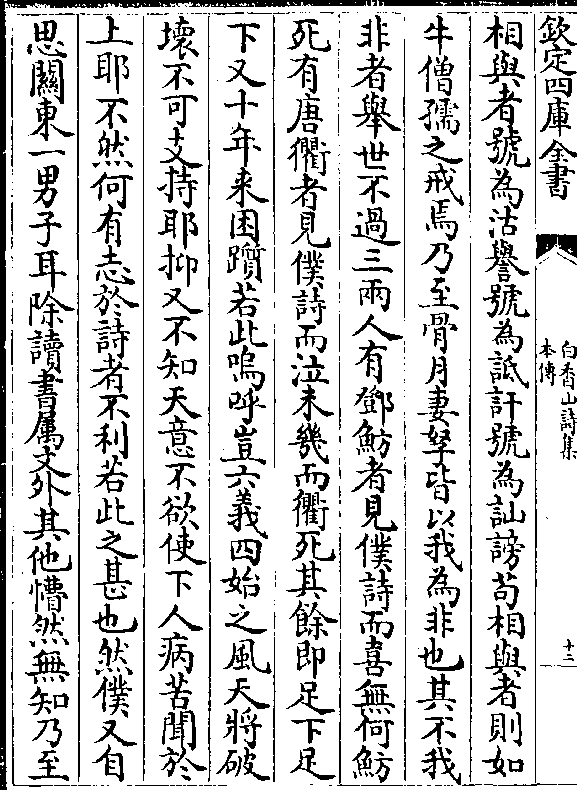 欽定四庫全書
白香山詩集
本傳
十二
相與者號為沽譽號為詆訐號為訕謗苟相與者則如
牛僧孺之戒焉乃至骨月妻孥皆以我為非也其不我
非者舉世不過三兩人有鄧魴者見僕詩而喜無何魴
死有唐衢者見僕詩而泣未幾而衢死其餘即足下足
下又十年來困躓若此嗚呼豈六義四始之風天將破
壞不可支持耶抑又不知天意不欲使下人病苦聞於
上耶不然何有志於詩者不利若此之甚也然僕又自
思關東一男子耳除讀書属文外其他懵然無知乃至